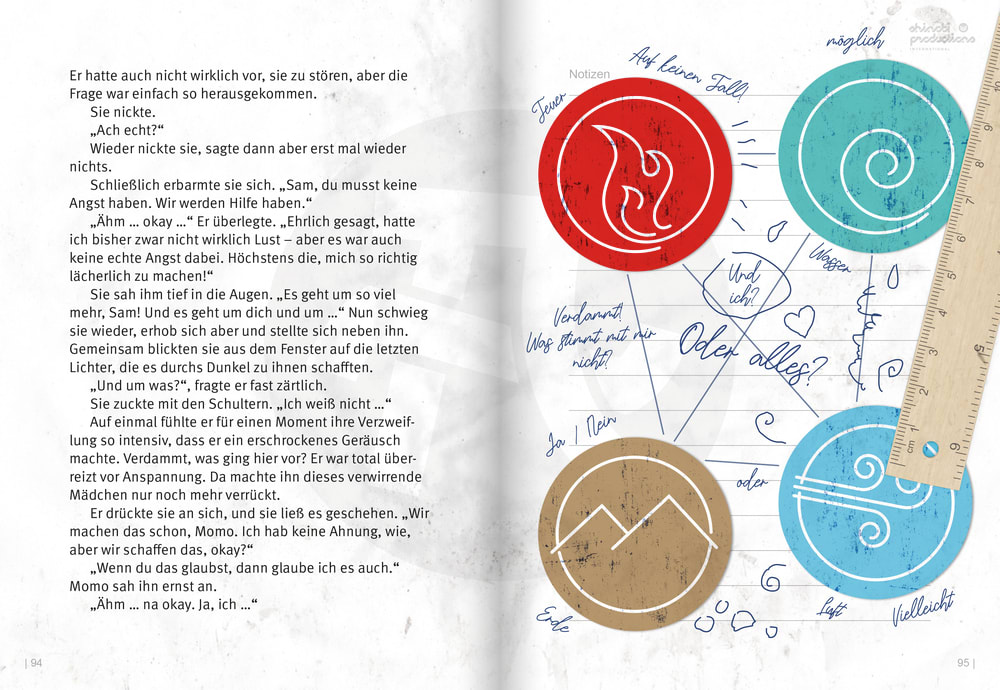 Er hatte auch nicht wirklich vor, sie zu stören, aber die
Frage war einfach so herausgekommen.
Sie nickte.
„Ach echt?“
Wieder nickte sie, sagte dann aber erst mal wieder
nichts.
Schließlich erbarmte sie sich. „Sam, du musst keine
Angst haben. Wir werden Hilfe haben.“
„Ähm … okay …“ Er überlegte. „Ehrlich gesagt, hatte
ich bisher zwar nicht wirklich Lust – aber es war auch
keine echte Angst dabei. Höchstens die, mich so richtig
lächerlich zu machen!“
Sie sah ihm tief in die Augen. „Es geht um so viel
mehr, Sam! Und es geht um dich und um …“ Nun schwieg
sie wieder, erhob sich aber und stellte sich neben ihn.
Gemeinsam blickten sie aus dem Fenster auf die letzten
Lichter, die es durchs Dunkel zu ihnen schafften.
„Und um was?“, fragte er fast zärtlich.
Sie zuckte mit den Schultern. „Ich weiß nicht …“
Auf einmal fühlte er für einen Moment ihre Verzweif-
lung so intensiv, dass er ein erschrockenes Geräusch
machte. Verdammt, was ging hier vor? Er war total über-
reizt vor Anspannung. Da machte ihn dieses verwirrende
Mädchen nur noch mehr verrückt.
Er drückte sie an sich, und sie ließ es geschehen. „Wir
machen das schon, Momo. Ich hab keine Ahnung, wie,
aber wir schaffen das, okay?“
„Wenn du das glaubst, dann glaube ich es auch.“
Momo sah ihn ernst an.
„Ähm … na okay. Ja, ich …“
| 94
shinobi
productions
INTERNATIONAL
möglich
Auf keinen Fall!
Notizen
Feuer
Wasser
Und
ich?
Verdammt!
Was stimmt mit mir
nicht?
Oder alles?
Warum
Ja / Nein
oder
Erde
Luft
Vielleicht
cm 1 2 3 4 5 6 7 8 9 10
5
6
95 |